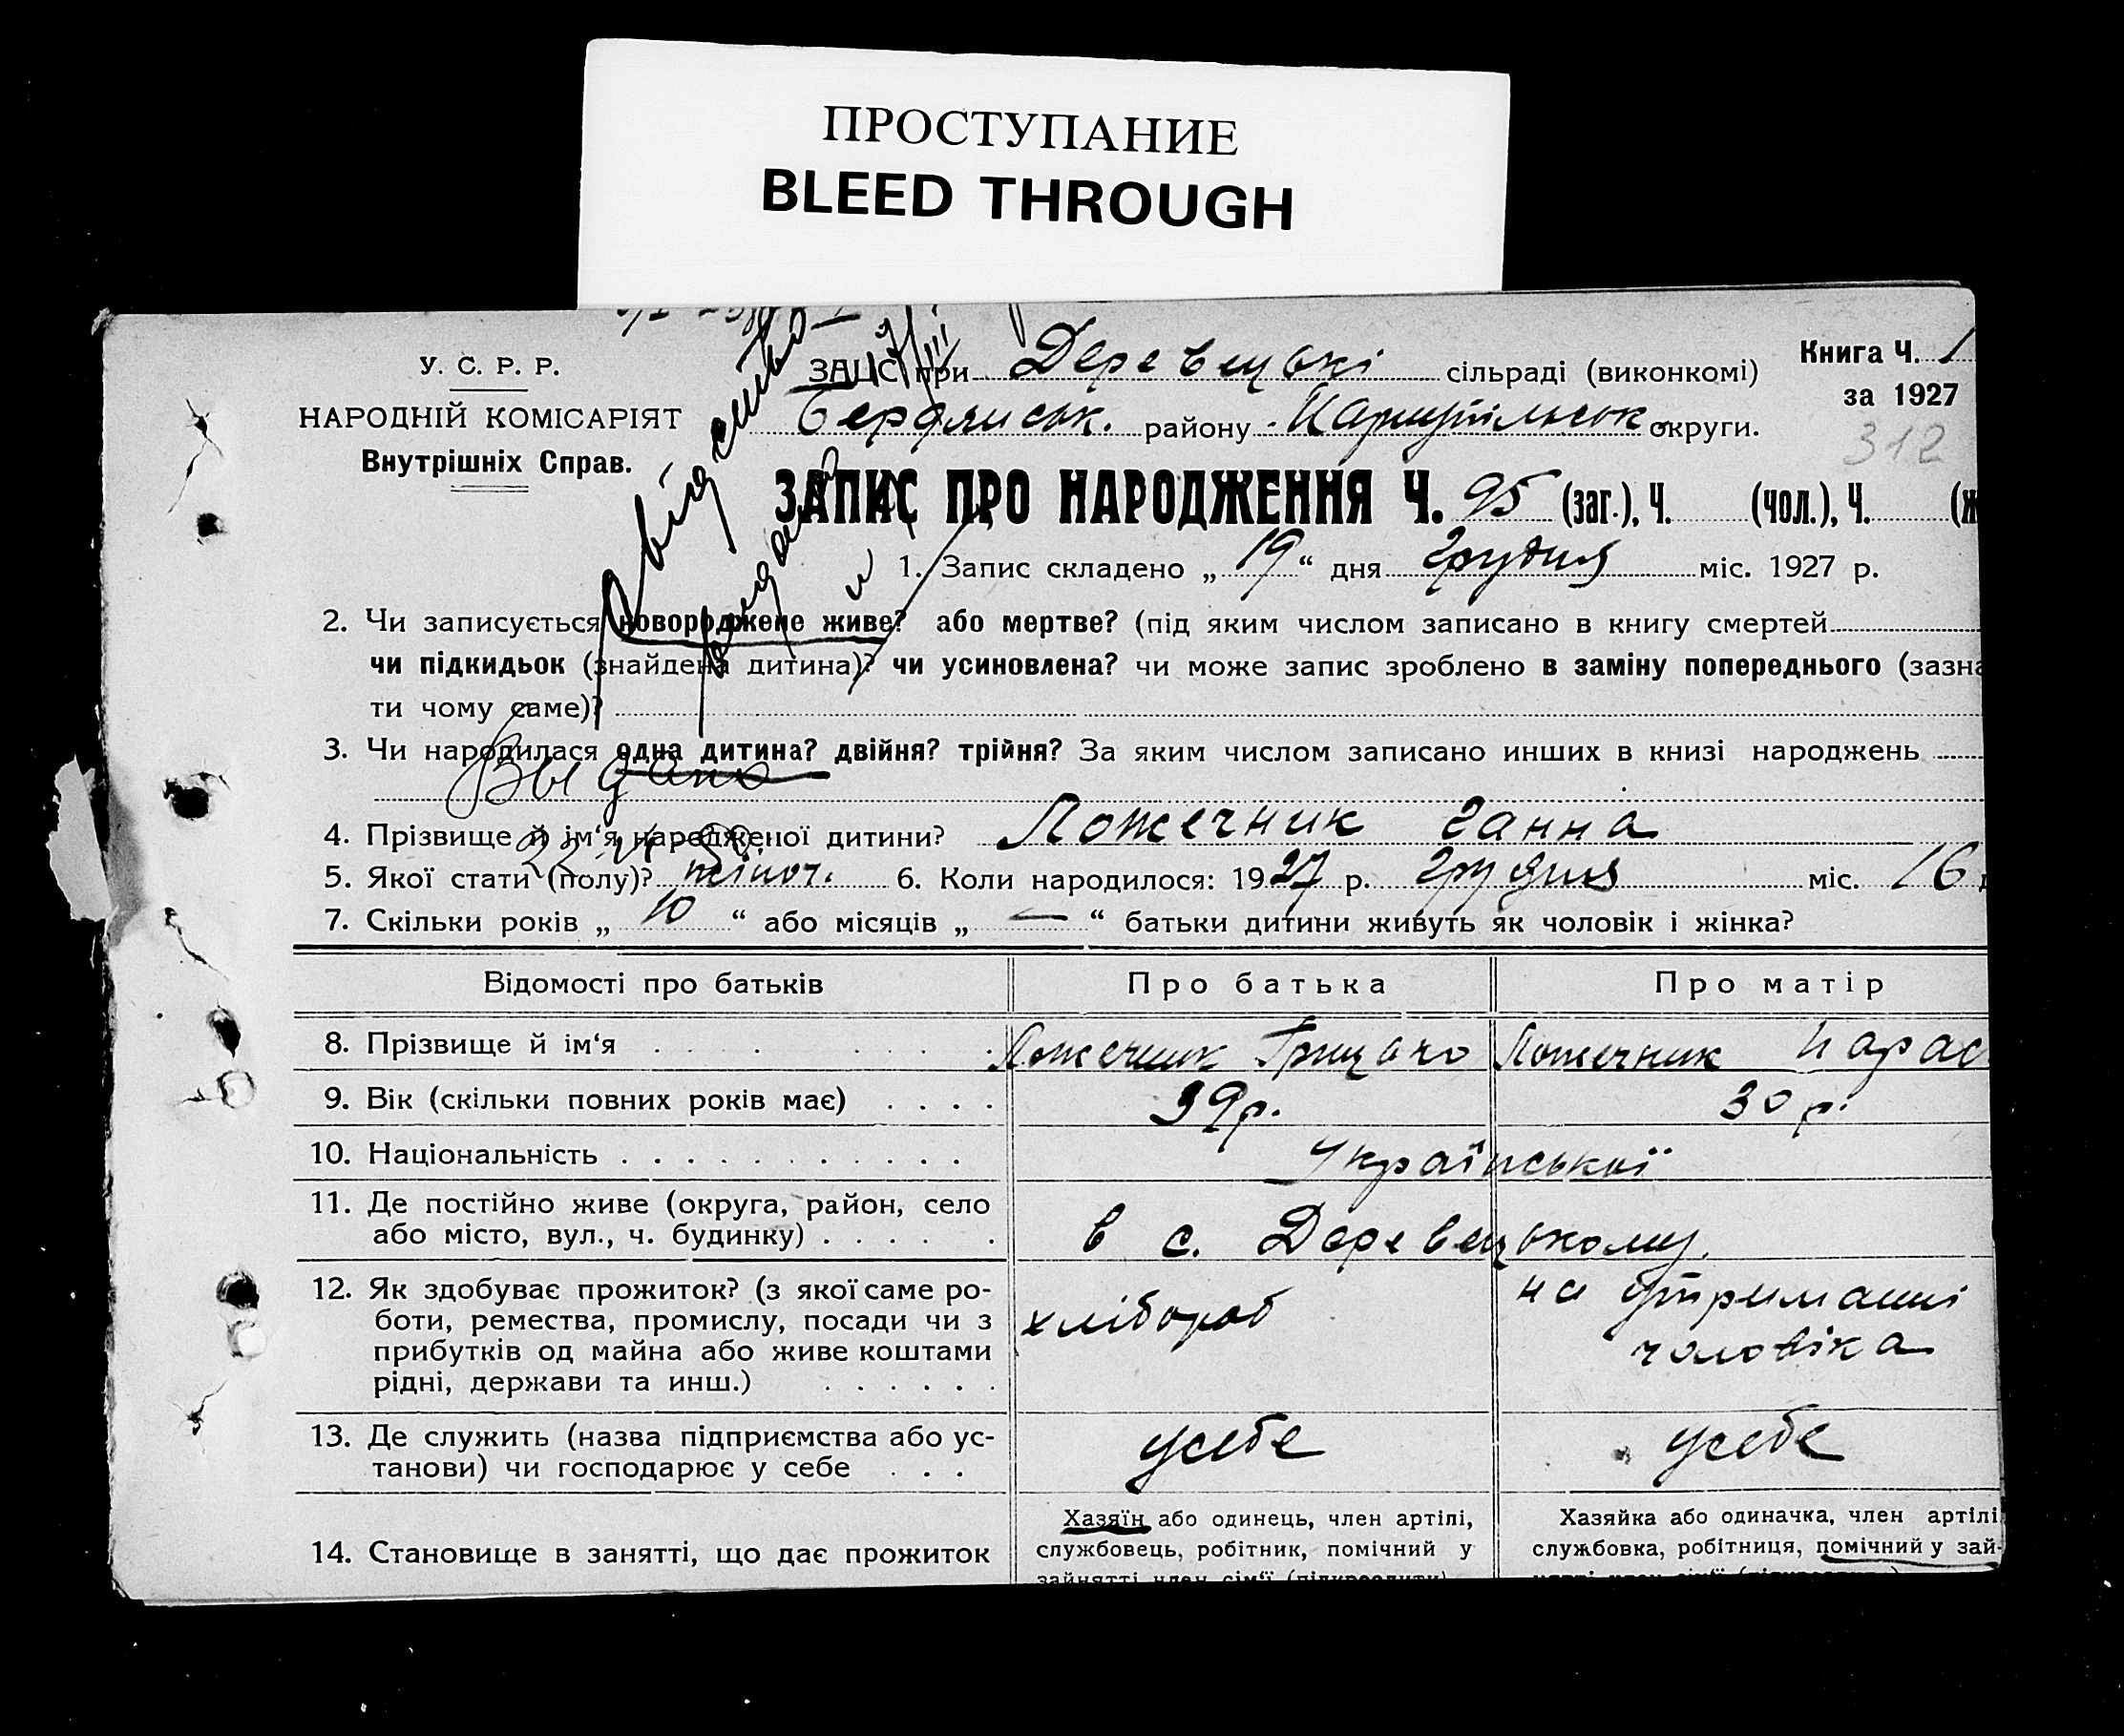 ПРОСТУПАНИЕ
BLEED THROUGH
У. С. Р. Р.
НАРОДНІЙ КОМІСАРІЯТ
Внутрішніх Справ.
ЗАЦС при Деревецькі сільраді (виконкомі)
Книга Ч. 1
за 1927
Бердянськ. району Маріупільськ округи.
312
ЗАПИС ПРО НАРОДЖЕННЯ Ч. 95 (заг.), Ч. (чол.), Ч. (ж
1. Запис складено „ 19 “ дня грудня міс. 1927 р.
2. Чи записується новороджене живе? або мертве? (під яким числом записано в книгу смертей
чи підкидьок (знайдена дитина)? чи усиновлена? чи може запис зроблено в заміну попереднього (зазна
ти чому саме)?
3. Чи народилася одна дитина? двійня? трійня? За яким числом записано инших в книзі народжень
Выдано
4. Прізвище й ім‘я народженої дитини? Ложечник Ганна
5. Якої стати (полу)? жіноч. 6. Коли народилося: 1927 р. грудня міс. 16 д
7. Скільки років „ 10 “ або місяців „ — “ батьки дитини живуть як чоловік і жінка?
Відомості про батьків Про батька Про матір
8. Прізвище й ім‘я Ложечник Грицько Ложечник Парас
9. Вік (скільки повних років має) 39р. 30 р.
10. Національність Української
11. Де постійно живе (округа, район, село
або місто, вул., ч. будинку) в с. Деревецькому.
12. Як здобуває прожиток? (з якої саме ро-
боти, ремества, промислу, посади чи з
прибутків од майна або живе коштами
рідні, держави та инш.)
хлібороб
на утриманні
чоловіка
13. Де служить (назва підприємства або ус-
танови) чи господарює у себе
усебе усебе
14. Становище в занятті, що дає прожиток
Хазяїн або одинець, член артілі,
службовець, робітник, помічний у
зайнятті член сім‘ї (підкреслити)
Хазяйка або одиначка, член артілі
службовка, робітниця, помічний у зай-